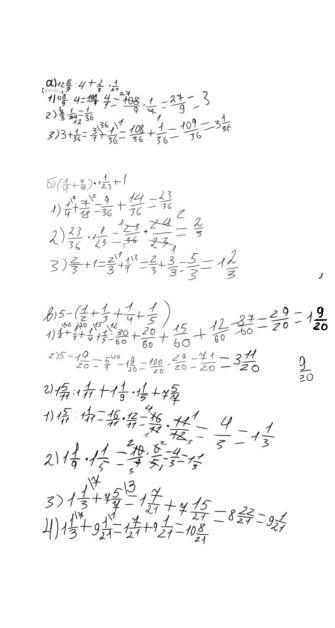 а) 12 8/9 : 4 + 2/3 · 1/24
1) 12 8/9 : 4 = 108/9 : 4/1 = 108/9 · 1/4 = 27/9 = 3
3) 3 + 1/36 = 3/1 + 1/36 = 108/36 + 1/36 = 109/36 = 3 1/36
1) 1/4 + 7/18 = 9/36 + 14/36 = 23/36
2) 23/36 · 1 1/23 = 23/36 · 24/23 = 2/3
3) 2/3 + 1 = 2/3 + 1/1 = 2/3 + 3/3 = 5/3 = 1 2/3
в) 5 - (1/2 + 1/3 + 1/4 + 1/5)
1) 1/2 + 1/3 + 1/4 + 1/5 = 30/60 + 20/60 + 15/60 + 12/60 = 87/60 = 29/20 = 1 9/20
2) 5 - 1 9/20 = 5/1 - 1 9/20 = 100/20 - 29/20 = 71/20 = 3 11/20
9/20
г) 1 5/11 : 1 1/11 + 1 1/9 · 1 1/5 + 7 5/7
1) 1 5/11 : 1 1/11 = 16/11 : 12/11 = 16/11 · 11/12 = 4/3 = 1 1/3
2) 1 1/9 · 1 1/5 = 10/9 · 6/5 = 4/3 = 1 1/3
3) 1 1/3 + 7 5/7 = 1 7/21 + 7 15/21 = 8 22/21 = 9 1/21
4) 1 1/3 + 9 1/21 = 1 7/21 + 9 1/21 = 10 8/21